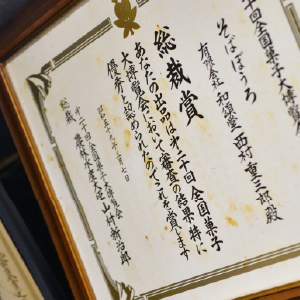 十回全国菓子大博
そばぼうろ
有限会社 和順堂 西村重三郎殿
総裁賞
あなたの出品は第二十回全国菓子
大博覧会において審査の結果特に
優秀と認められたのでこれを賞します
昭和五十九年三月七日
第二十回全国菓子大博覧会
総裁 農林水産大臣 山村新治郎